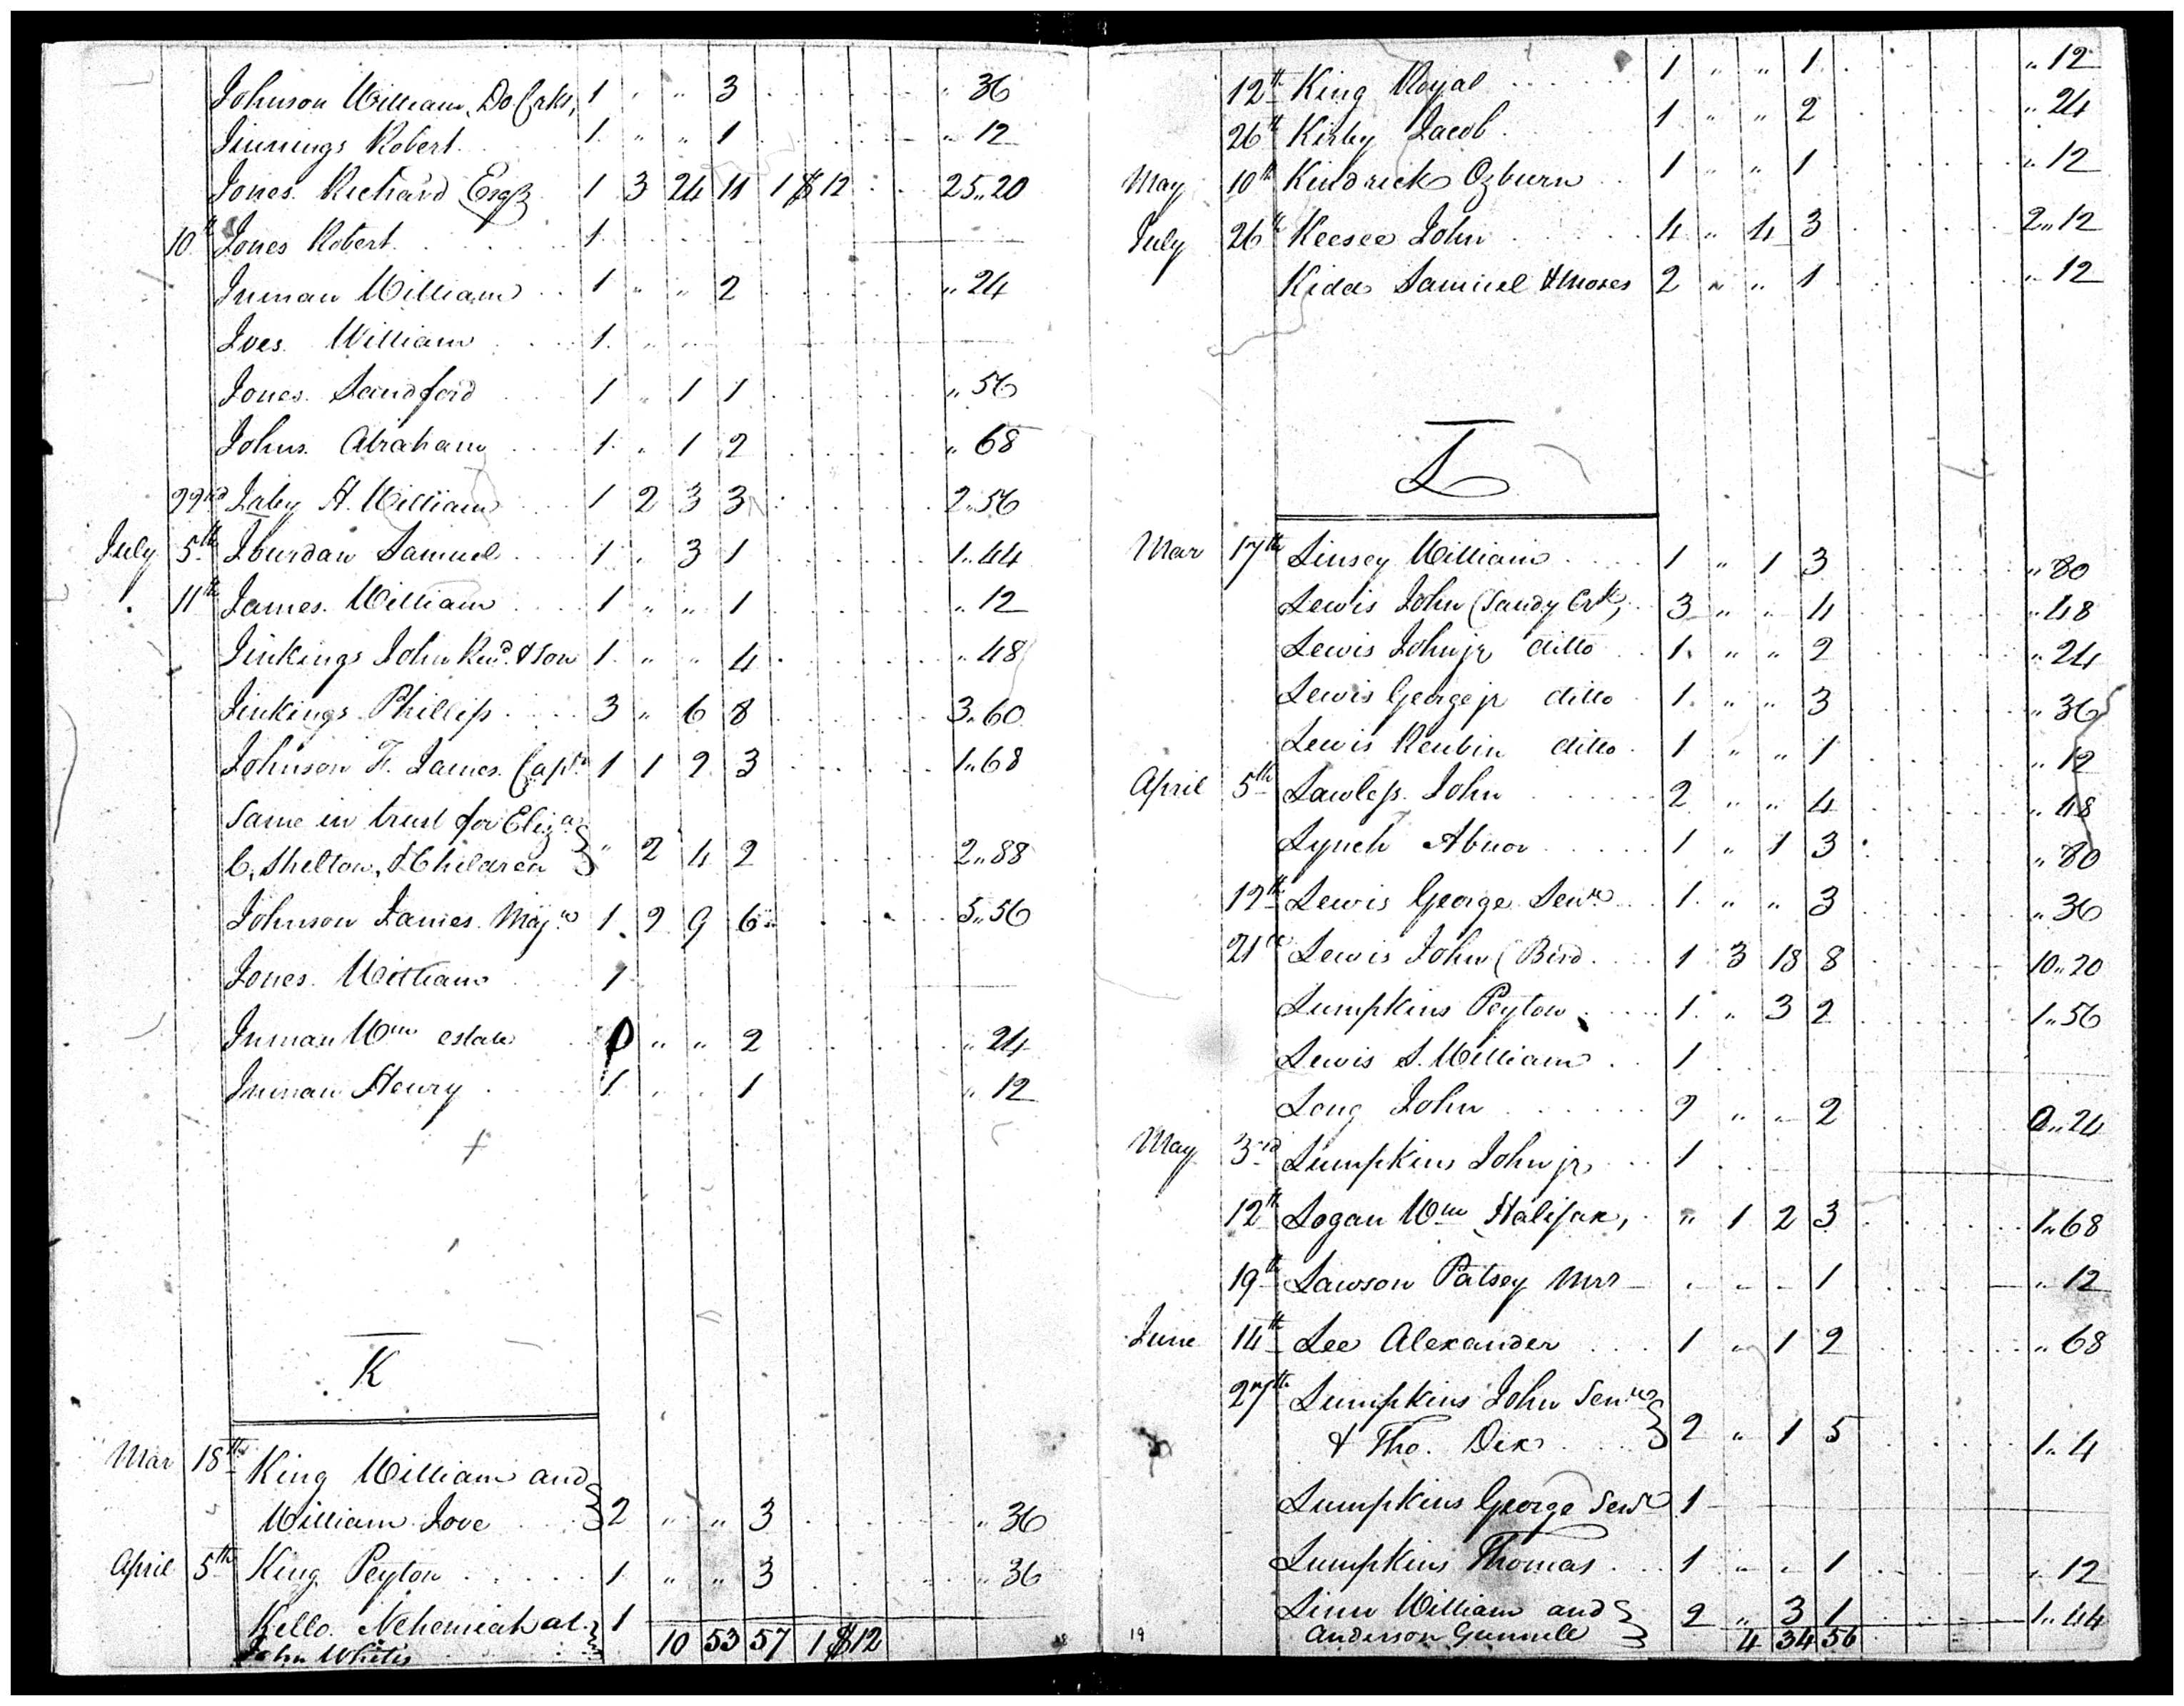 Johnson William, Do Crks, 1 " " 3 " 36
Jinnings Robert 1 " " 1 " 12
Jones Richard Esqr 1 3 24 11 1 $12 25.. 20
10th Jones Robert 1
Inman William 1 " " 2 " 24
Ives William 1
Jones Sandford 1 " 1 1 " 56
Johns Abraham 1 " 1 2 " 68
22nd H. William 1 2 3 3 2.. 56
July 5th Samuel 1 " 3 1 1.. 44
11th James William 1 " " 1 " 12
Jinkings John Revd. & son 1 " " 4 " 48
Jinkings Phillip 3 " 6 8 3.. 60
Johnson F. James Captn 1 1 2 3 1.. 68
Same in trust for Eliza
C. Shelton, & Children " 2 4 2 2.. 88
Johnson James Majr 1 2 9 6 5.. 56
Jones William 1
Inman Wm estate 0 " " 2 " 24
Inman Henry 1 " " 1 " 12
K
Mar 18th King William and
William Jove 2 " " 3 " 36
April 5th King Peyton 1 " " 3 " 36
Kello Nehemiah at 1
John Whites 10 53 57 1 $12
12th King Royal 1 " " 1 " 12
26th Kirby Jacob 1 " " 2 " 24
May 10th Kindrick Ozburn 1 " " 1 " 12
July 26th Keesee John 4 " 4 3 2.. 12
Kidd Samuel & Moses 2 " " 1 " 12
L
Mar 17th Linsey William 1 " 1 3 " 80
Lewis John (Sandy Crk, 3 " " 4 " 48
Lewis John jr ditto 1 " " 2 " 24
Lewis George jr ditto 1 " " 3 " 36
Lewis Reubin ditto 1 " " 1 " 12
April 5th Lawless John 2 " " 4 " 48
Lynch Abnor 1 " 1 3 " 80
12th Lewis George Senr 1 " " 3 " 36
21st Lewis John (Bird 1 3 18 8 10.. 20
Lumpkins Peyton 1 " 3 2 1.. 56
Lewis S. William 1
Long John 2 " " 2 0.. 24
May 3rd Lumpkins John jr 1
12th Logan Wm Halifax, " 1 2 3 1.. 68
19th Lawson Patsey Mrs " " " 1 " 12
June 14th Lee Alexander 1 " 1 2 " 68
27th Lumpkins John Senr
& Tho. Dix 2 " 1 5 1.. 4
Lumpkins George Senr 1
Lumpkins Thomas 1 " " 1 " 12
Linn William and 2 " 3 1 1.. 44
Anderson Gunnell 4 34 56
19